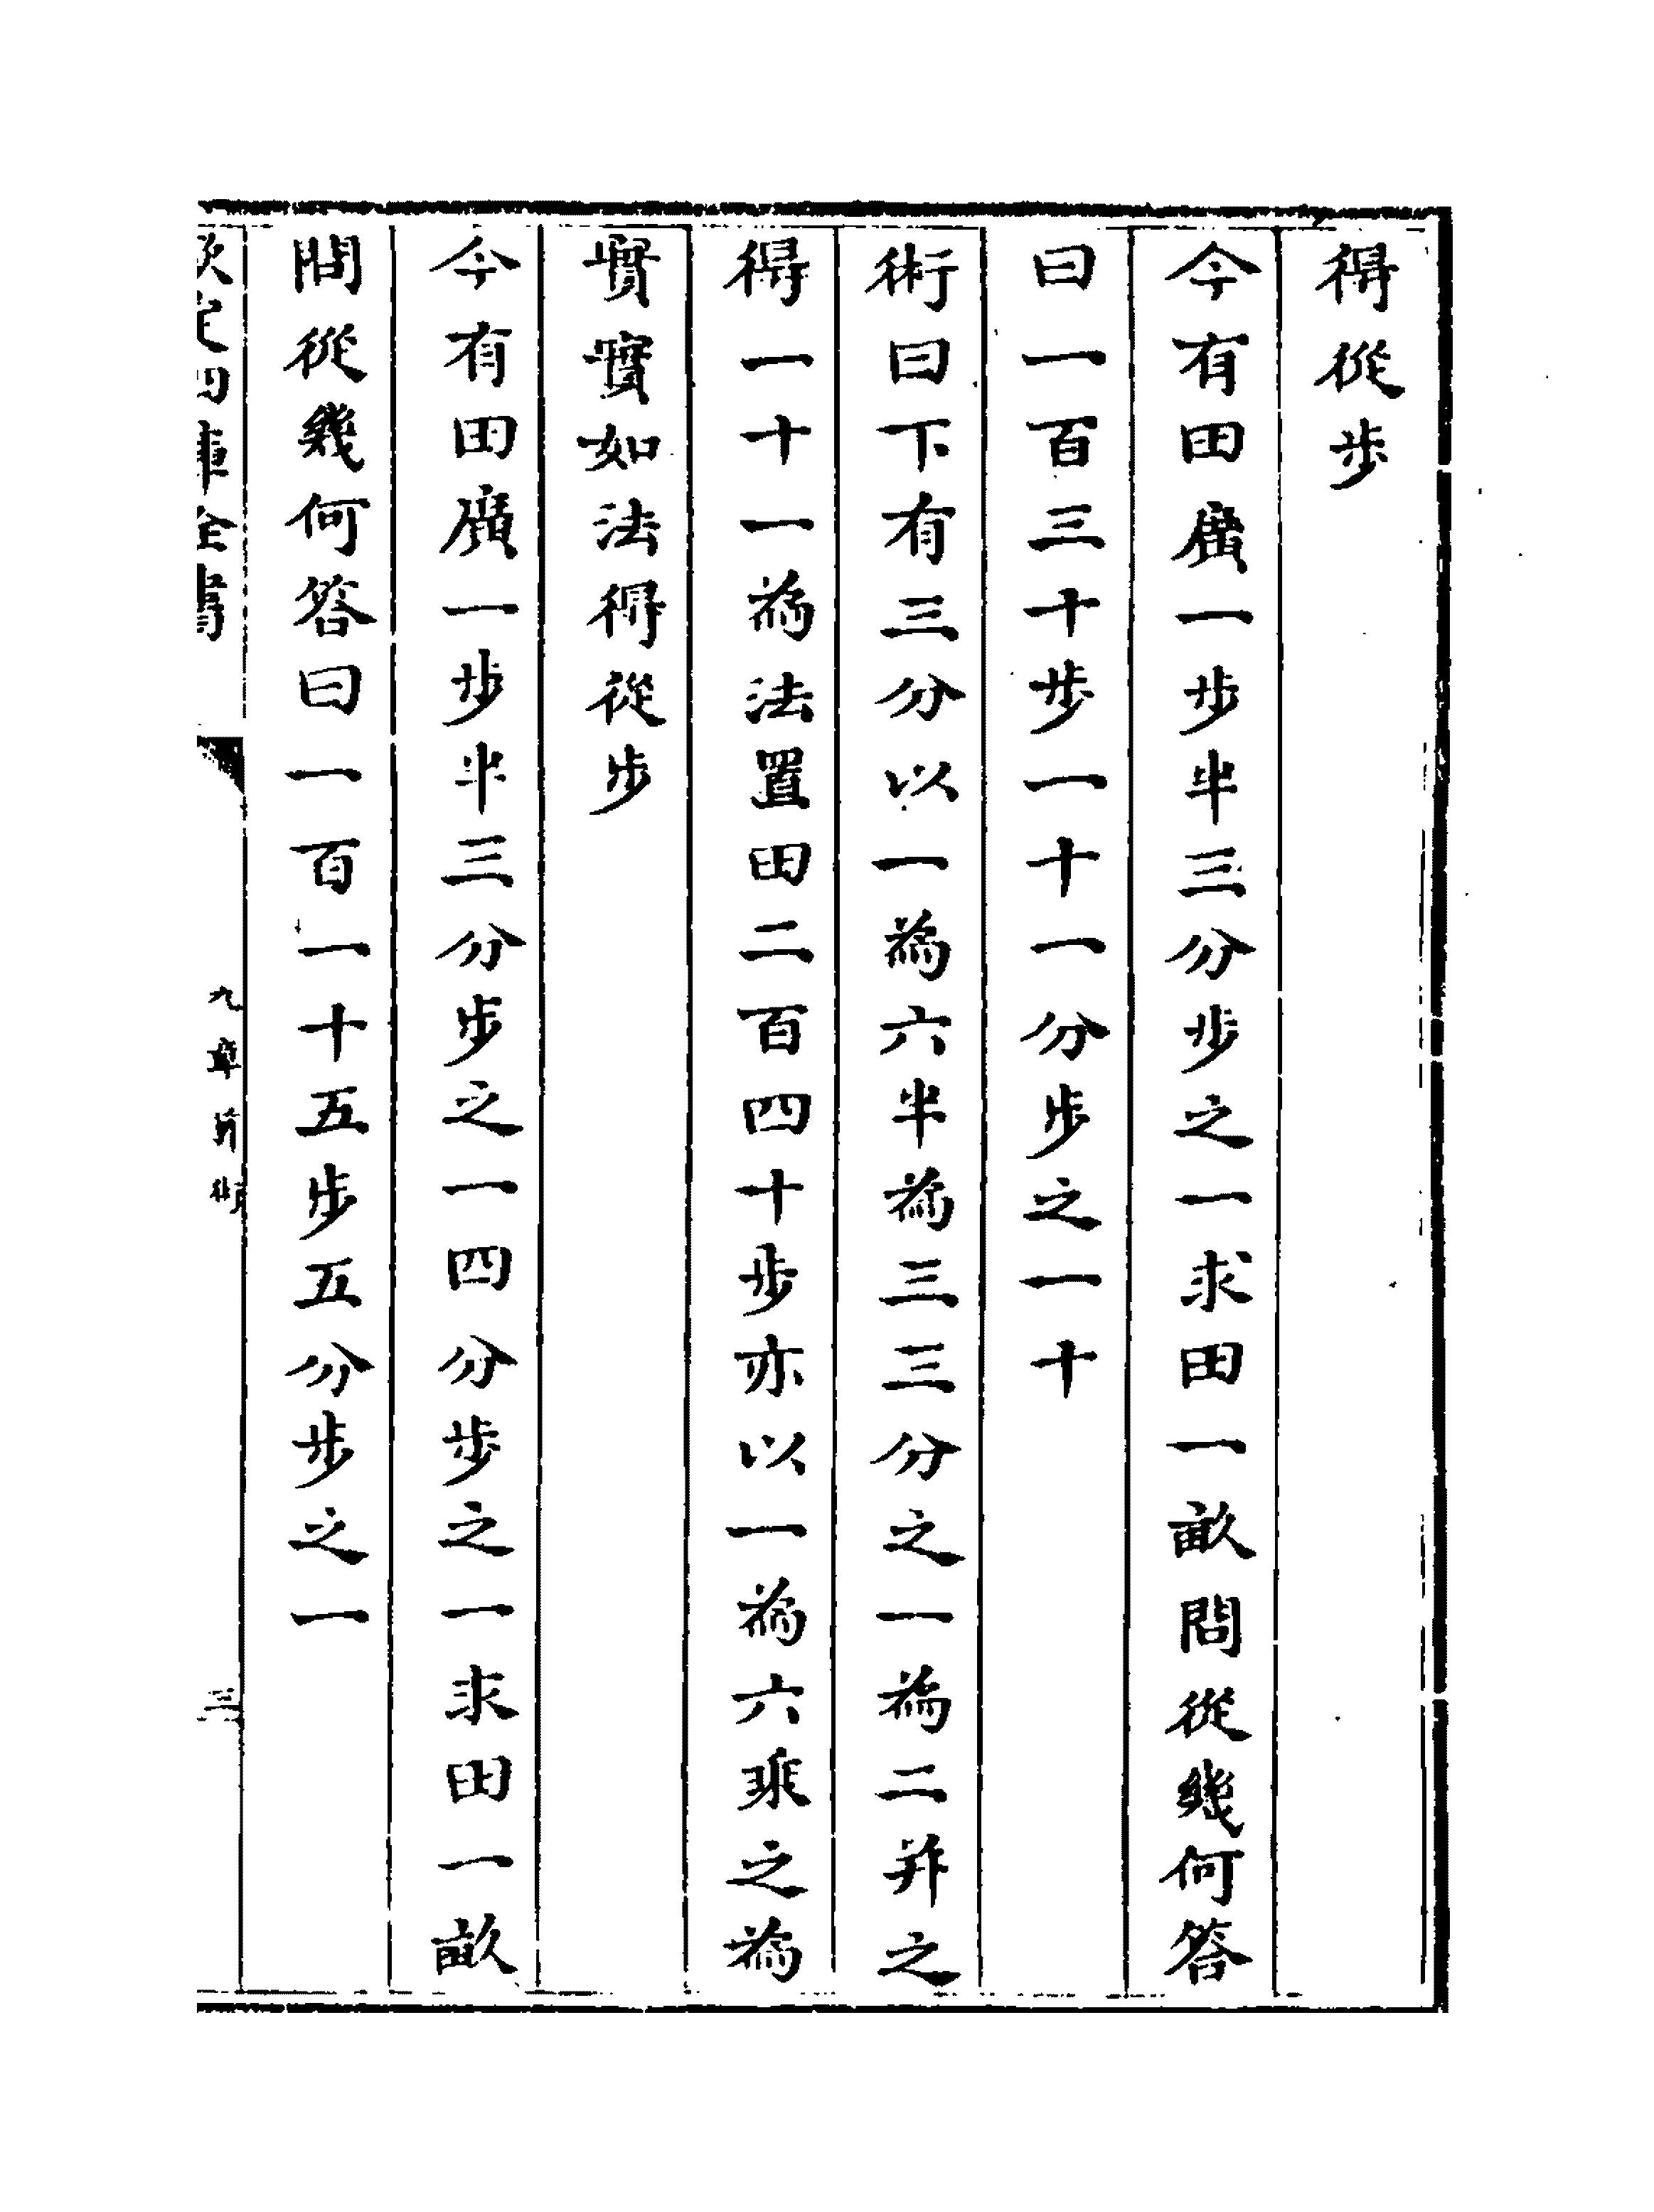 得從步
今有田廣一步半三分步之一求田一畝問從幾何答
曰一百三十步一十一分步之一十
術曰下有三分以一為六半為三三分之一為二并之
得一十一為法置田二百四十步亦以一為六乘之為
實實如法得從步
今有田廣一步半三分步之一四分步之一求田一畝
問從幾何答曰一百一十五步五分步之一
欽定四庫全書
九章算術
三